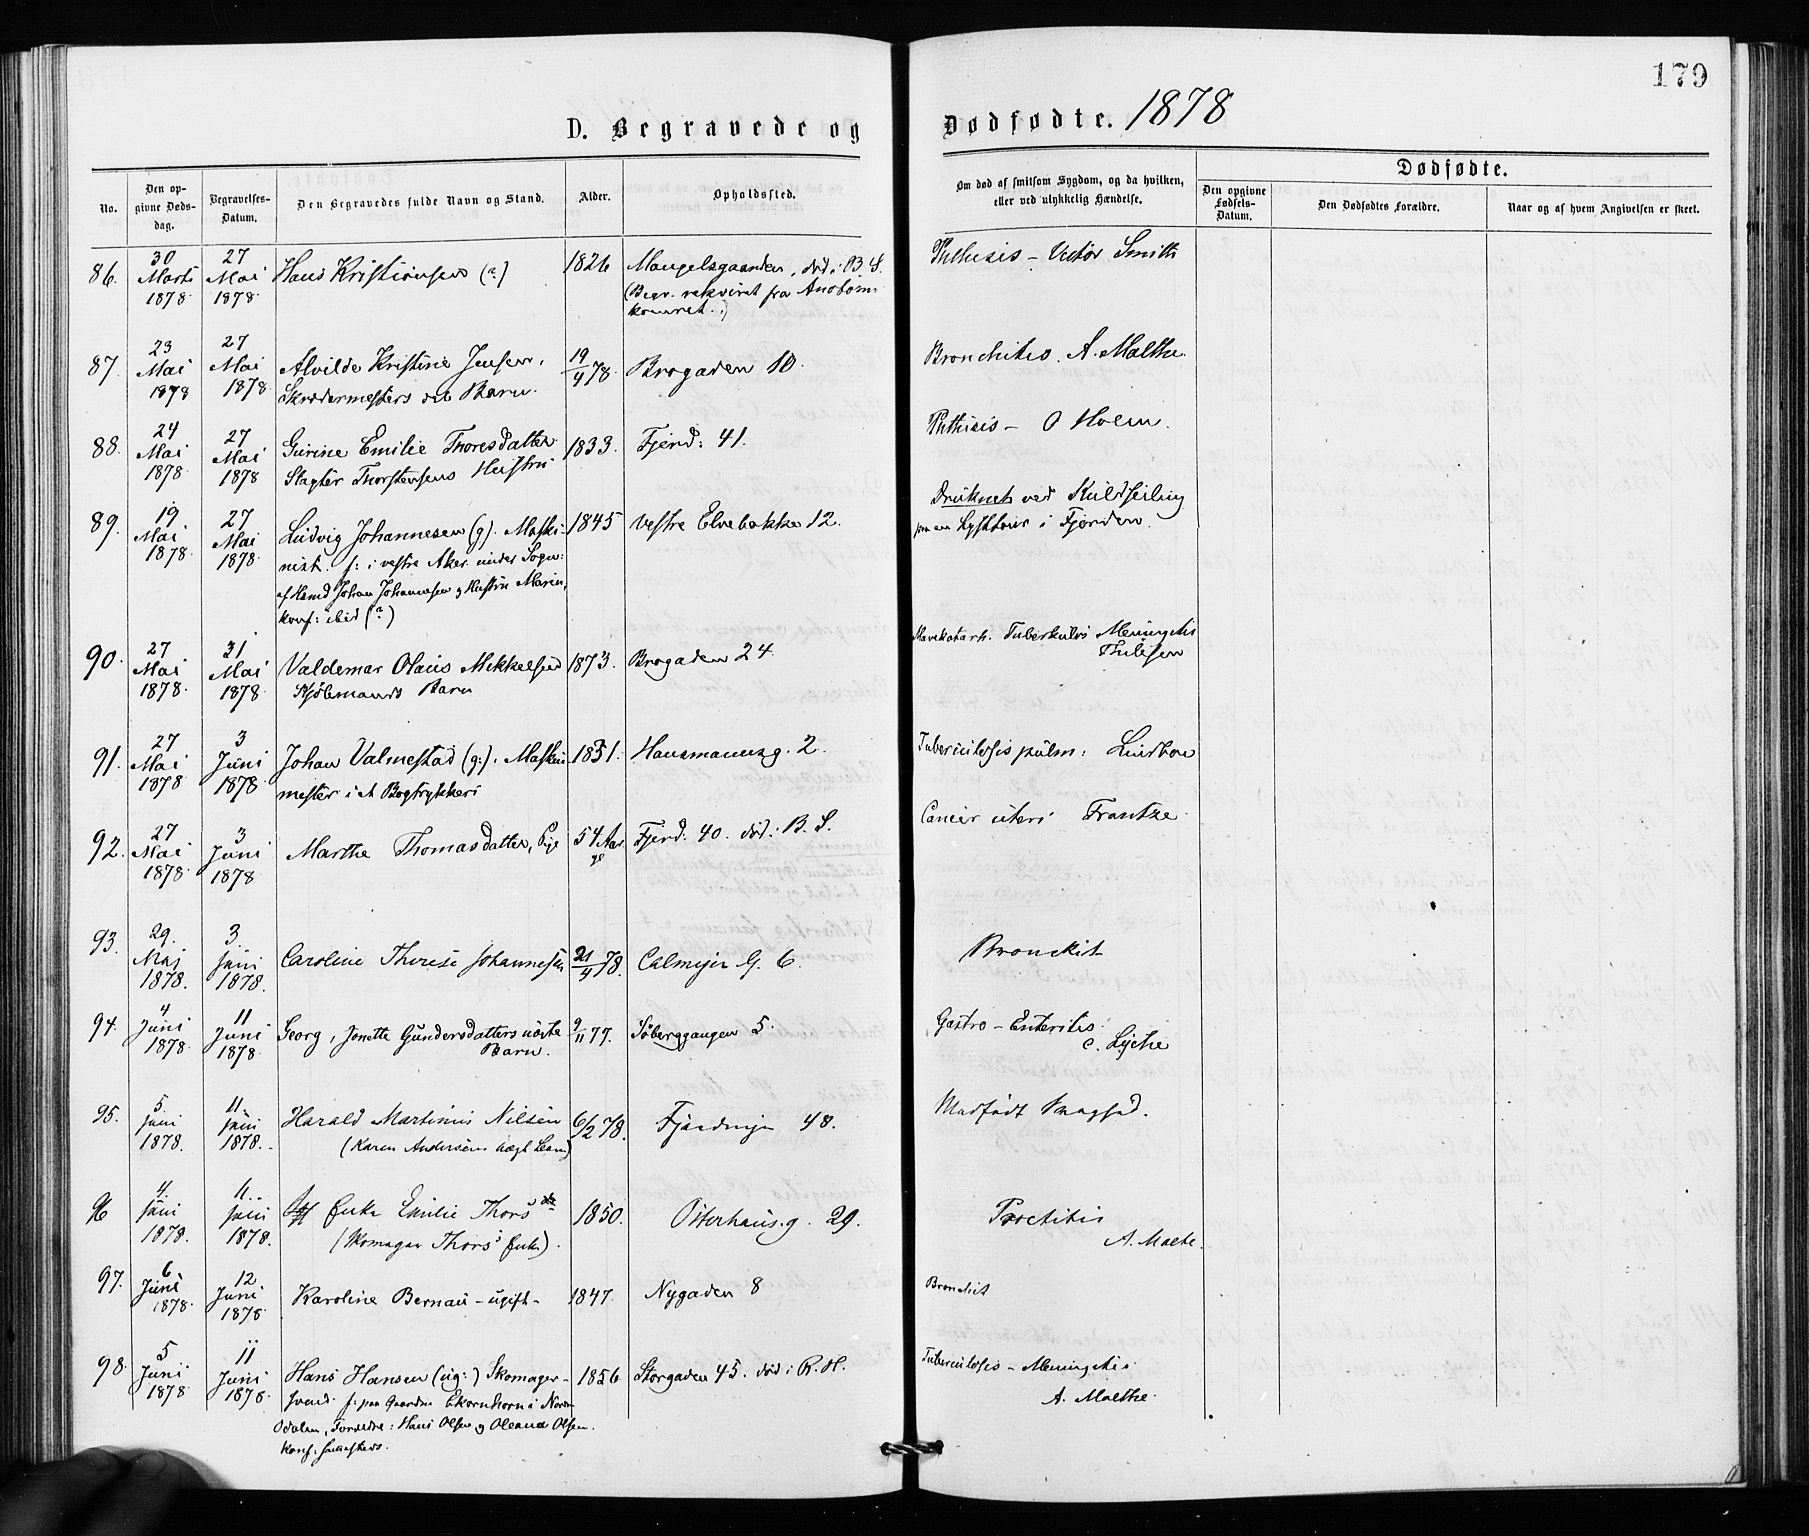 179
D. Begravede og Dødfødte. 1878
No.
Den opgivne Dødsdag.
Begravelses-Datum.
Den Begravedes fulde Navn og Stand.
Alder.
Opholdssted.
Om død af smitsom Sygdom, og da hvilken, eller ved ulykkelig Hændelse.
Dødfødte.
Den opgivne Fødsels-Datum.
Den Dødfødtes Forældre.
Naar og af hvem Angivelsen er skeet.
86. 30 Marts 1878 27 Mai 1878. Hans Kristiansen (?) 1826 Mangelsgaarden, død i B. S. Phthisis - Victor Smith
(Begr. rekviret fra Anatom-
kamret.)
87. 23 Mai 1878 27 Mai 1878 Alvilde Kristine Jensen, 19/4 78. Brogaden 10. Bronchitis. A. Malthe.
Skrædermesters Barn.
88. 24 Mai 1878. 27 Mai 1878 Gurine Emilie Thoresdatter 1833. Fjerd: 41. Phthisis - O Holm.
Slagter Thorstensens Hustru
89. 19 Mai 1878. 27 Mai 1878. Ludvig Johannesen (g). Maski- 1845 Vestre Elvebakke 12. Druknet ved Kuldseiling
nist. f: i vestre Aker under Sogn: paa en Lysttour i Fjorden.
af Johan Johannesen og Hustru Maren,
konf: ibid (?)
90. 27 Mai 1878. 31 Mai 1878. Valdemar Olaus Mikkelsen 1873. Brogaden 24. Mavekatarh. Tuberkuløs Meningitis
Barn Thulesen
91. 27 Mai 1878 3 Juni 1878. Johan Valmestad (g:). Maskin- 1851. Hausmannsg. 2. Tuberculosis pulm:
mester i et Bogtrykkeri
92. 27 Mai 1878. 3 Juni 1878 Marthe Thomasdatter, Pige 54 Aar. Fjerd. 40. død i B. S. Cancer uteri Frantze
93. 29. Maj 1878. 3. Juni 1878. Caroline Therese Johannesen 21/4 78. Calmeyer G. 6. Bronchit
94. 4 Juni 1878. 11 Juni 1878. Georg, Jonette Gundersdatters uægte 9/11 77. Søberggangen 5. Gastro-Enteritis.
Barn. C. Lyche
95. 5. Juni 1878. 11. Juni 1878. Harald Martinius Nilsen 6/2 78. Fjærdingen 48. Medfødt Svaghed.
(Karen Andersens uægt Barn)
96 4. Juni 1878. 11. Juni 1878. Enke Emilie Thors 1850. Osterhausg. 29. Proctitis
(Skomager Thors' Enke). A. Malthe.
97. 6 Juni 1878. 12 Juni 1878. Karoline Bernau - ugift - 1847. Nygaden 8 Bronchit
98. 5 Juni 1878 11 Juni 1878. Hans Hansen (ug:) Skomager- 1856. Storgaden 45. død i R. H. Tuberculosis - Meningitis
svend. f: paa Gaarden Ekornhorn i Nordre A. Malthe.
Odalen, Forældre: Hans Olsen og Oleana Olsen.
Konf: sammesteds.